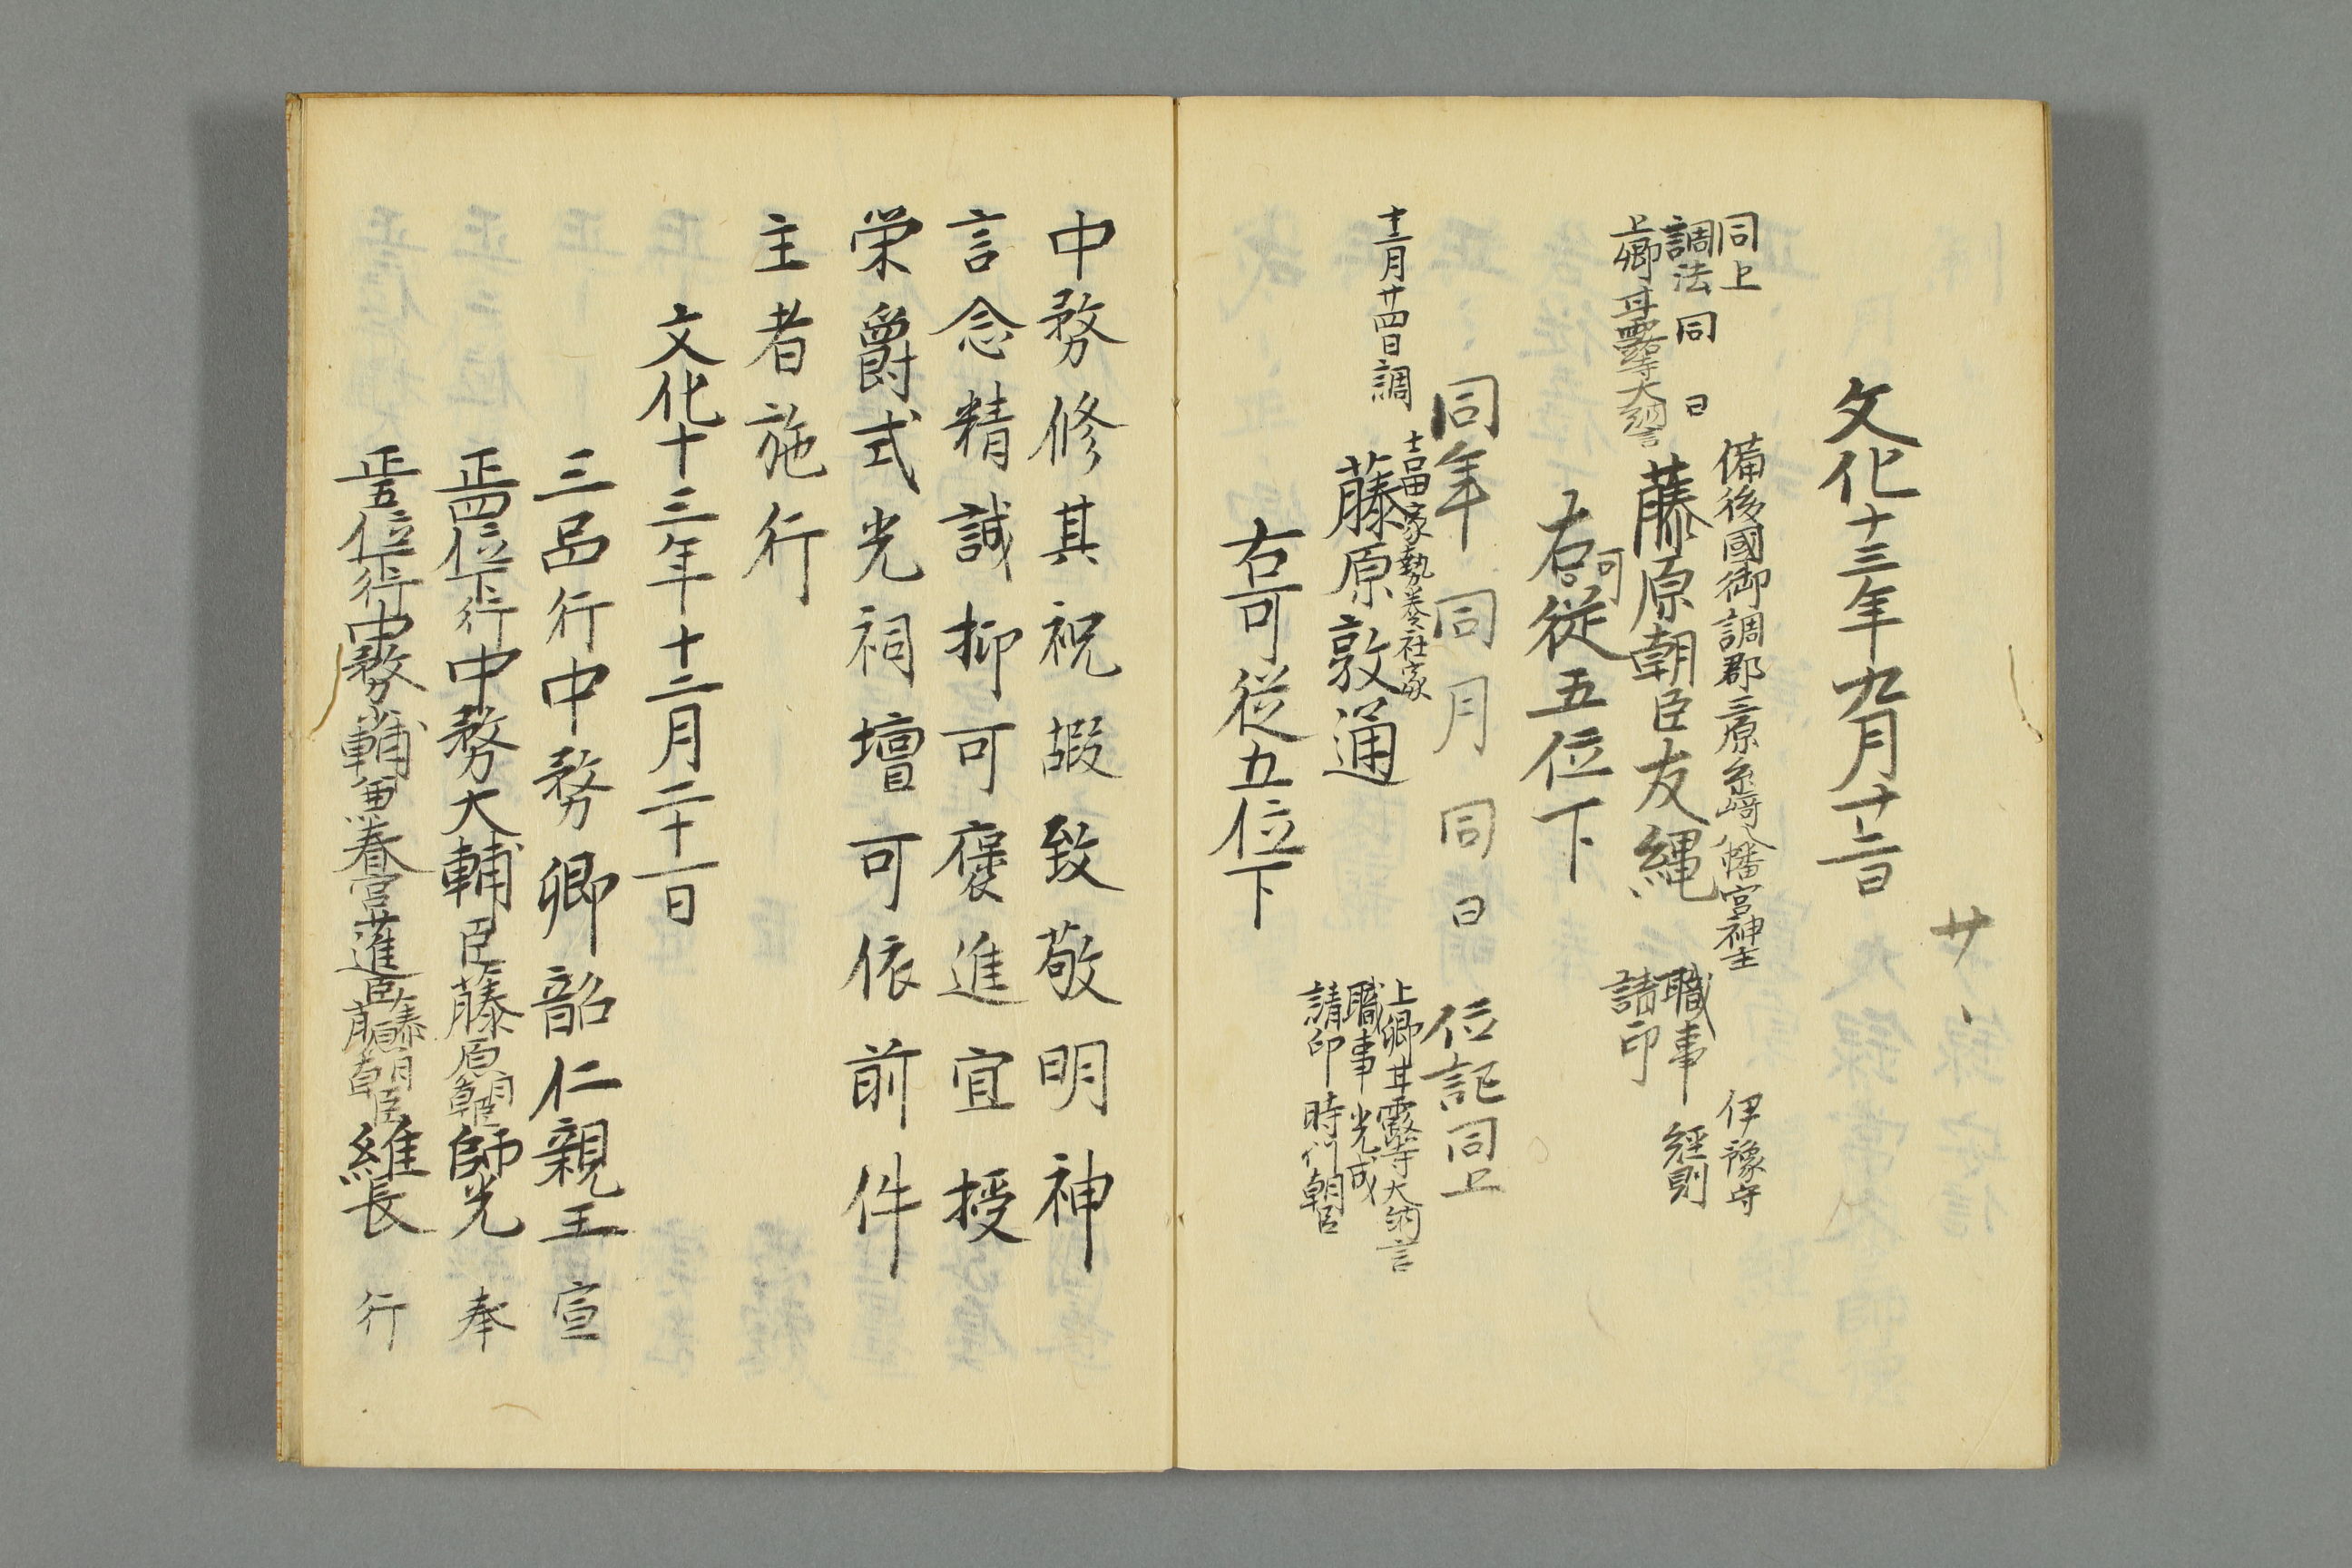 廿、
文化十三年九月十二日
同上
調法同日
上卿甘露寺大納言
備後國御調郡三原糸﨑八幡宮神主
伊豫守
藤原朝臣友縄
職事 経則
請印
右可従五位下
同年同月同日 位記同上
十二月廿四日調
吉田家勢巻社家
藤原敦通
上卿甘露寺大納言
職事 光成
請印 時 朝臣
右可従五位下
中務修其祝嘏致敬明神
言念精誠抑可褒進宜授
栄爵式光祠壇可依前件
主者施行
文化十三年十二月二十一日
三品行中務卿韶仁親王 宣
正四位下行中務大輔臣藤原朝臣師光 奉
正五位下行中務少輔兼春宮大進臣藤原朝臣維長 行